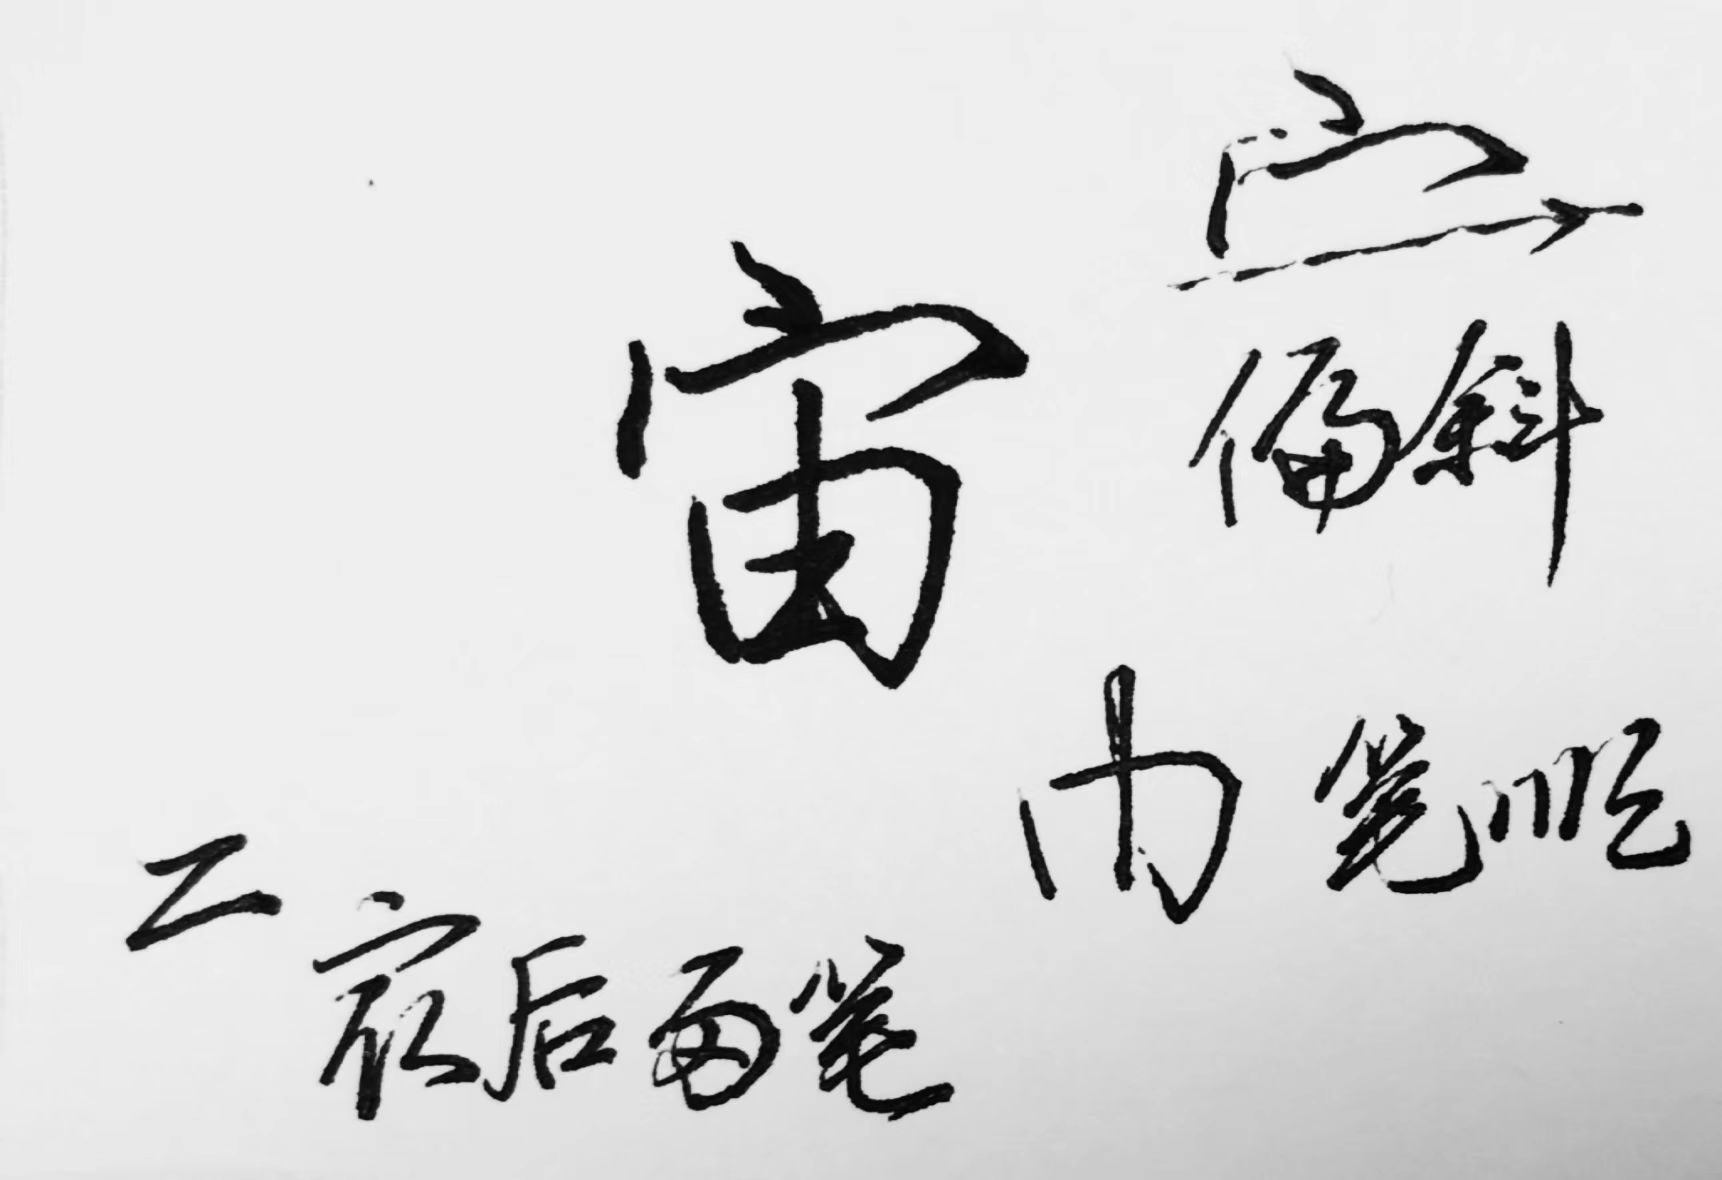 宀
偏斜
宙
巾 笔顺
二
最后两笔